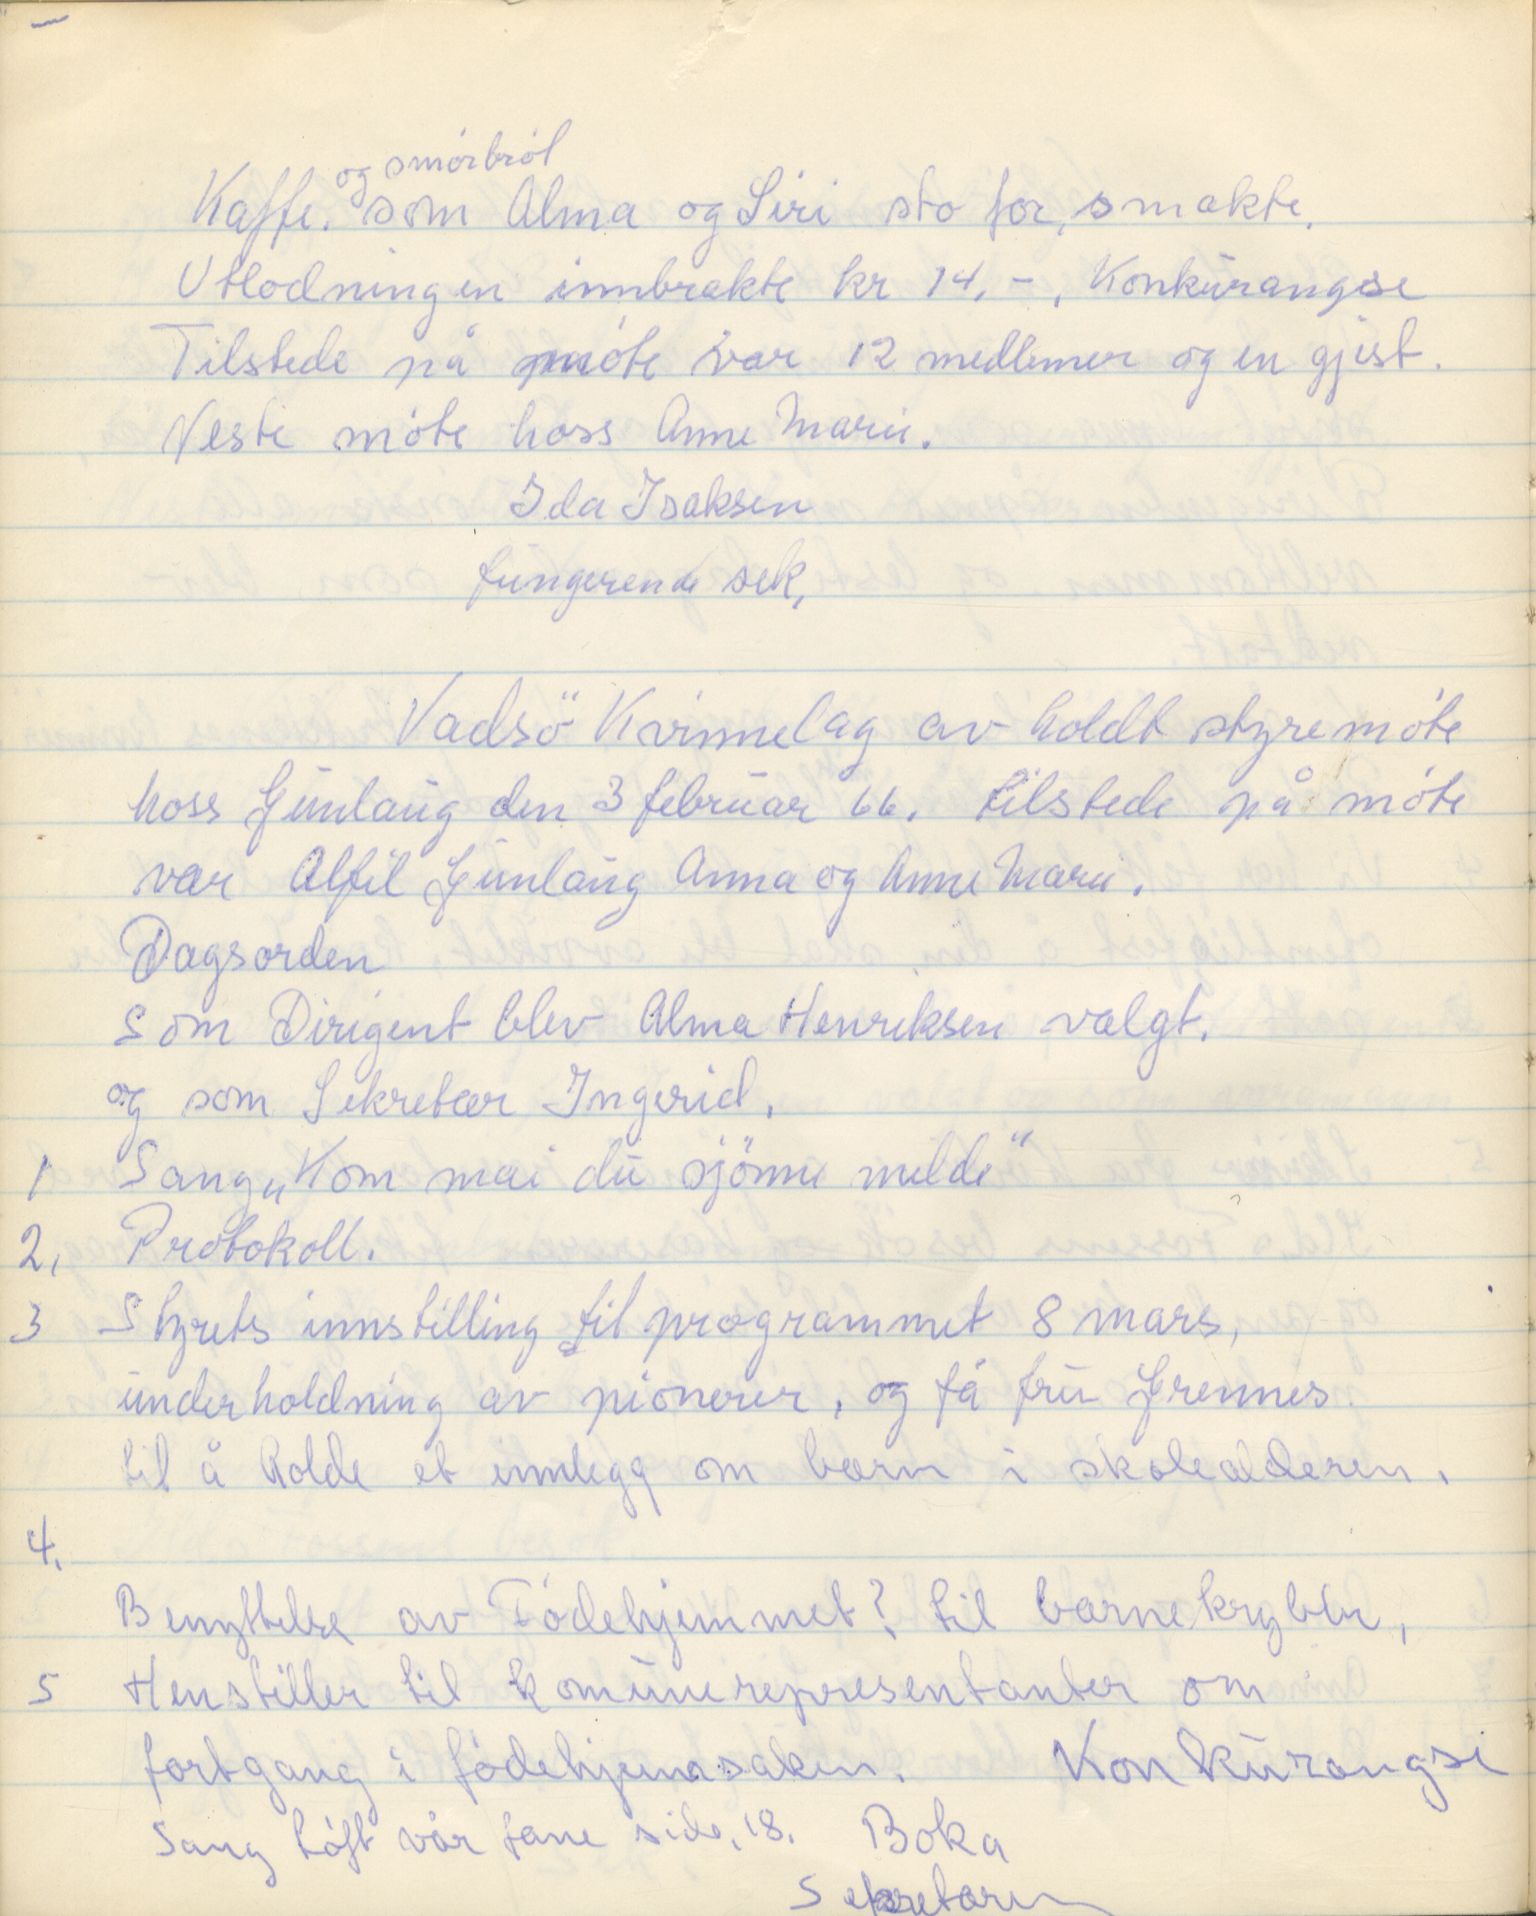 og smörbröl
Kaffe. som Alma og Siri sto for, smakte.
Utlodningen innbrakte kr 14,-, Konkurangse
Tilstede på möte var 12 medlemer og en gjest.
Neste möte hoss Anne Marie.
Ida Isaksen
fungerende sek,
Vadsö Kvinnelag av holdt styremöte
hoss Gunlaug den 3 februar 66. tilstede på möte
var Alfil Gunlaug Anna og Anne Marie.
Dagsorden
Som Dirigent blev Alma Henriksen valgt.
og som Sekretær Ingerid.
1 Sang „Kom mai du sjönne milde"
2, Protokoll.
3 Styrets innstilling til programmet 8 mars,
underholdning av pionerer, og få fru Grennes.
til å holde et innlegg om barn i skolealderen.
4.
Benyttelse av Födehjemmet? til barnekrybbe,
5 Henstiller til komunerepresentanter om
fortgang i födehjemsaken. Konkurangse
Sang Löft vår fane side, 18. Boka
Sekretæren